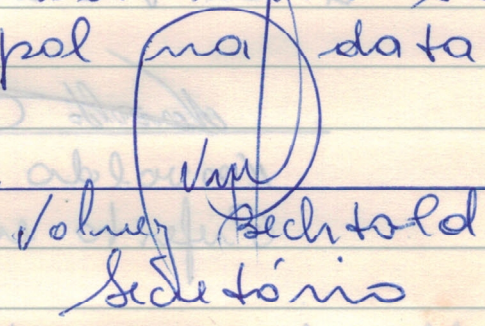 pol na data
Volnez Bechtold
Secretário